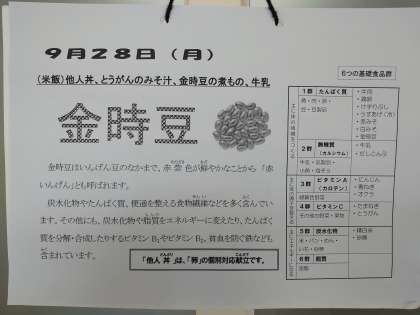 ９月２８日（月）
（米飯）他人丼、とうがんのみそ汁、金時豆の煮もの、牛乳
金時豆
金時豆はいんげん豆のなかまで、赤紫色が鮮やかなことから「赤
いんげん」とも呼ばれます。
炭水化物やたんぱく質、便通を整える食物繊維などを多く含んでい
ます。その他にも、炭水化物や脂質をエネルギーに変えたり、たんぱく
質を分解・合成したりするビタミンB₁やビタミンB₂、貧血を防ぐ鉄なども
含まれています。
「他人丼」は、「卵」の個別対応献立です。
６つの基礎食品群
１群 たんぱく質
・牛肉
・鶏卵
・けずりぶし
・うすあげ（市）
・赤みそ
・白みそ
・金時豆
２群 無機質
（カルシウム）
・牛乳
・だしこんぶ
３群 ビタミンA
（カロテン）
緑黄色野菜
・にんじん
・青ねぎ
・オクラ
４群 ビタミンC
その他の野菜・果物
・たまねぎ
・とうがん
５群 炭水化物
米・パン・めん・
いも・砂糖
・精白米
・砂糖
６群 脂質
油脂